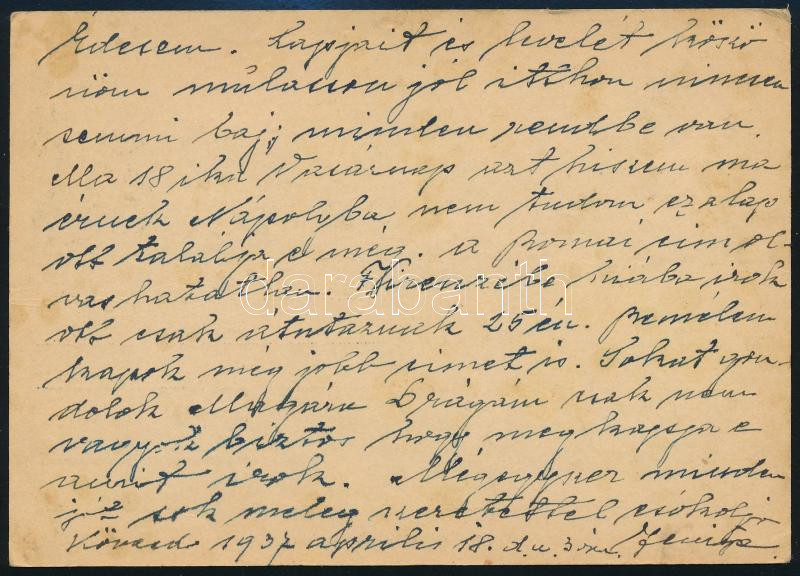 Édesem. Lapjait is levelét köszö
nöm mulasson jól itthon nincsen
semmi baj, minden rendbe van.
Ma 18 ika Vasárnap azt hiszem ma
érnek Nápolyba nem tudom ez a lap
ott találja e még. a Romai cim ol-
vashatatlan. Firenzébe hiába irok
ott csak átutaznak 25 én. Remélem
kapok még jobb cimet is. Sokat gon-
dolok Magára Drágám csak nem
vagyok biztos hogy megkapja e
amit irok. Mégegyszer minden
jót sok meleg szeretettel csókolja
1937 április 18. d.u. 3 óra.
darabanth